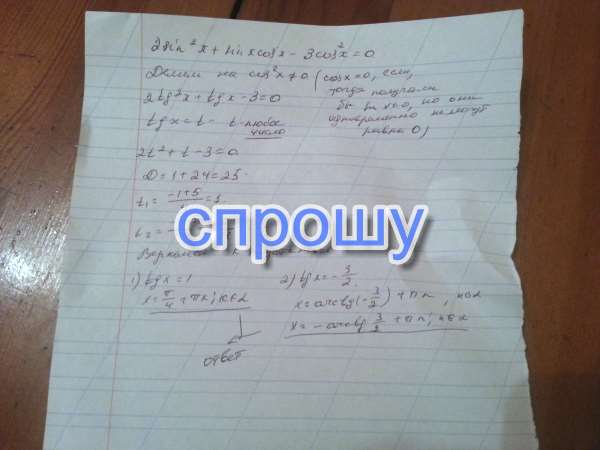 2sin²x + sinxcosx - 3cos²x = 0
Делим на cos²x ≠ 0 (cosx=0, если,
тогда получили
бы sinx=0, но они
одновременно не могут
равна 0)
2tg²x + tgx - 3 = 0
tgx = t - t - любое
число
2t² + t - 3 = 0
D = 1 + 24 = 25
t₁ = -1+5 = 1
t₂ = -
спрошу
1) tgx = 1
x = π/4 + πk; k∈Z
2) tgx = -3/2
x = arctg(-3/2) + πn, n∈Z
x = -arctg 3/2 + πn; n∈Z
ответ